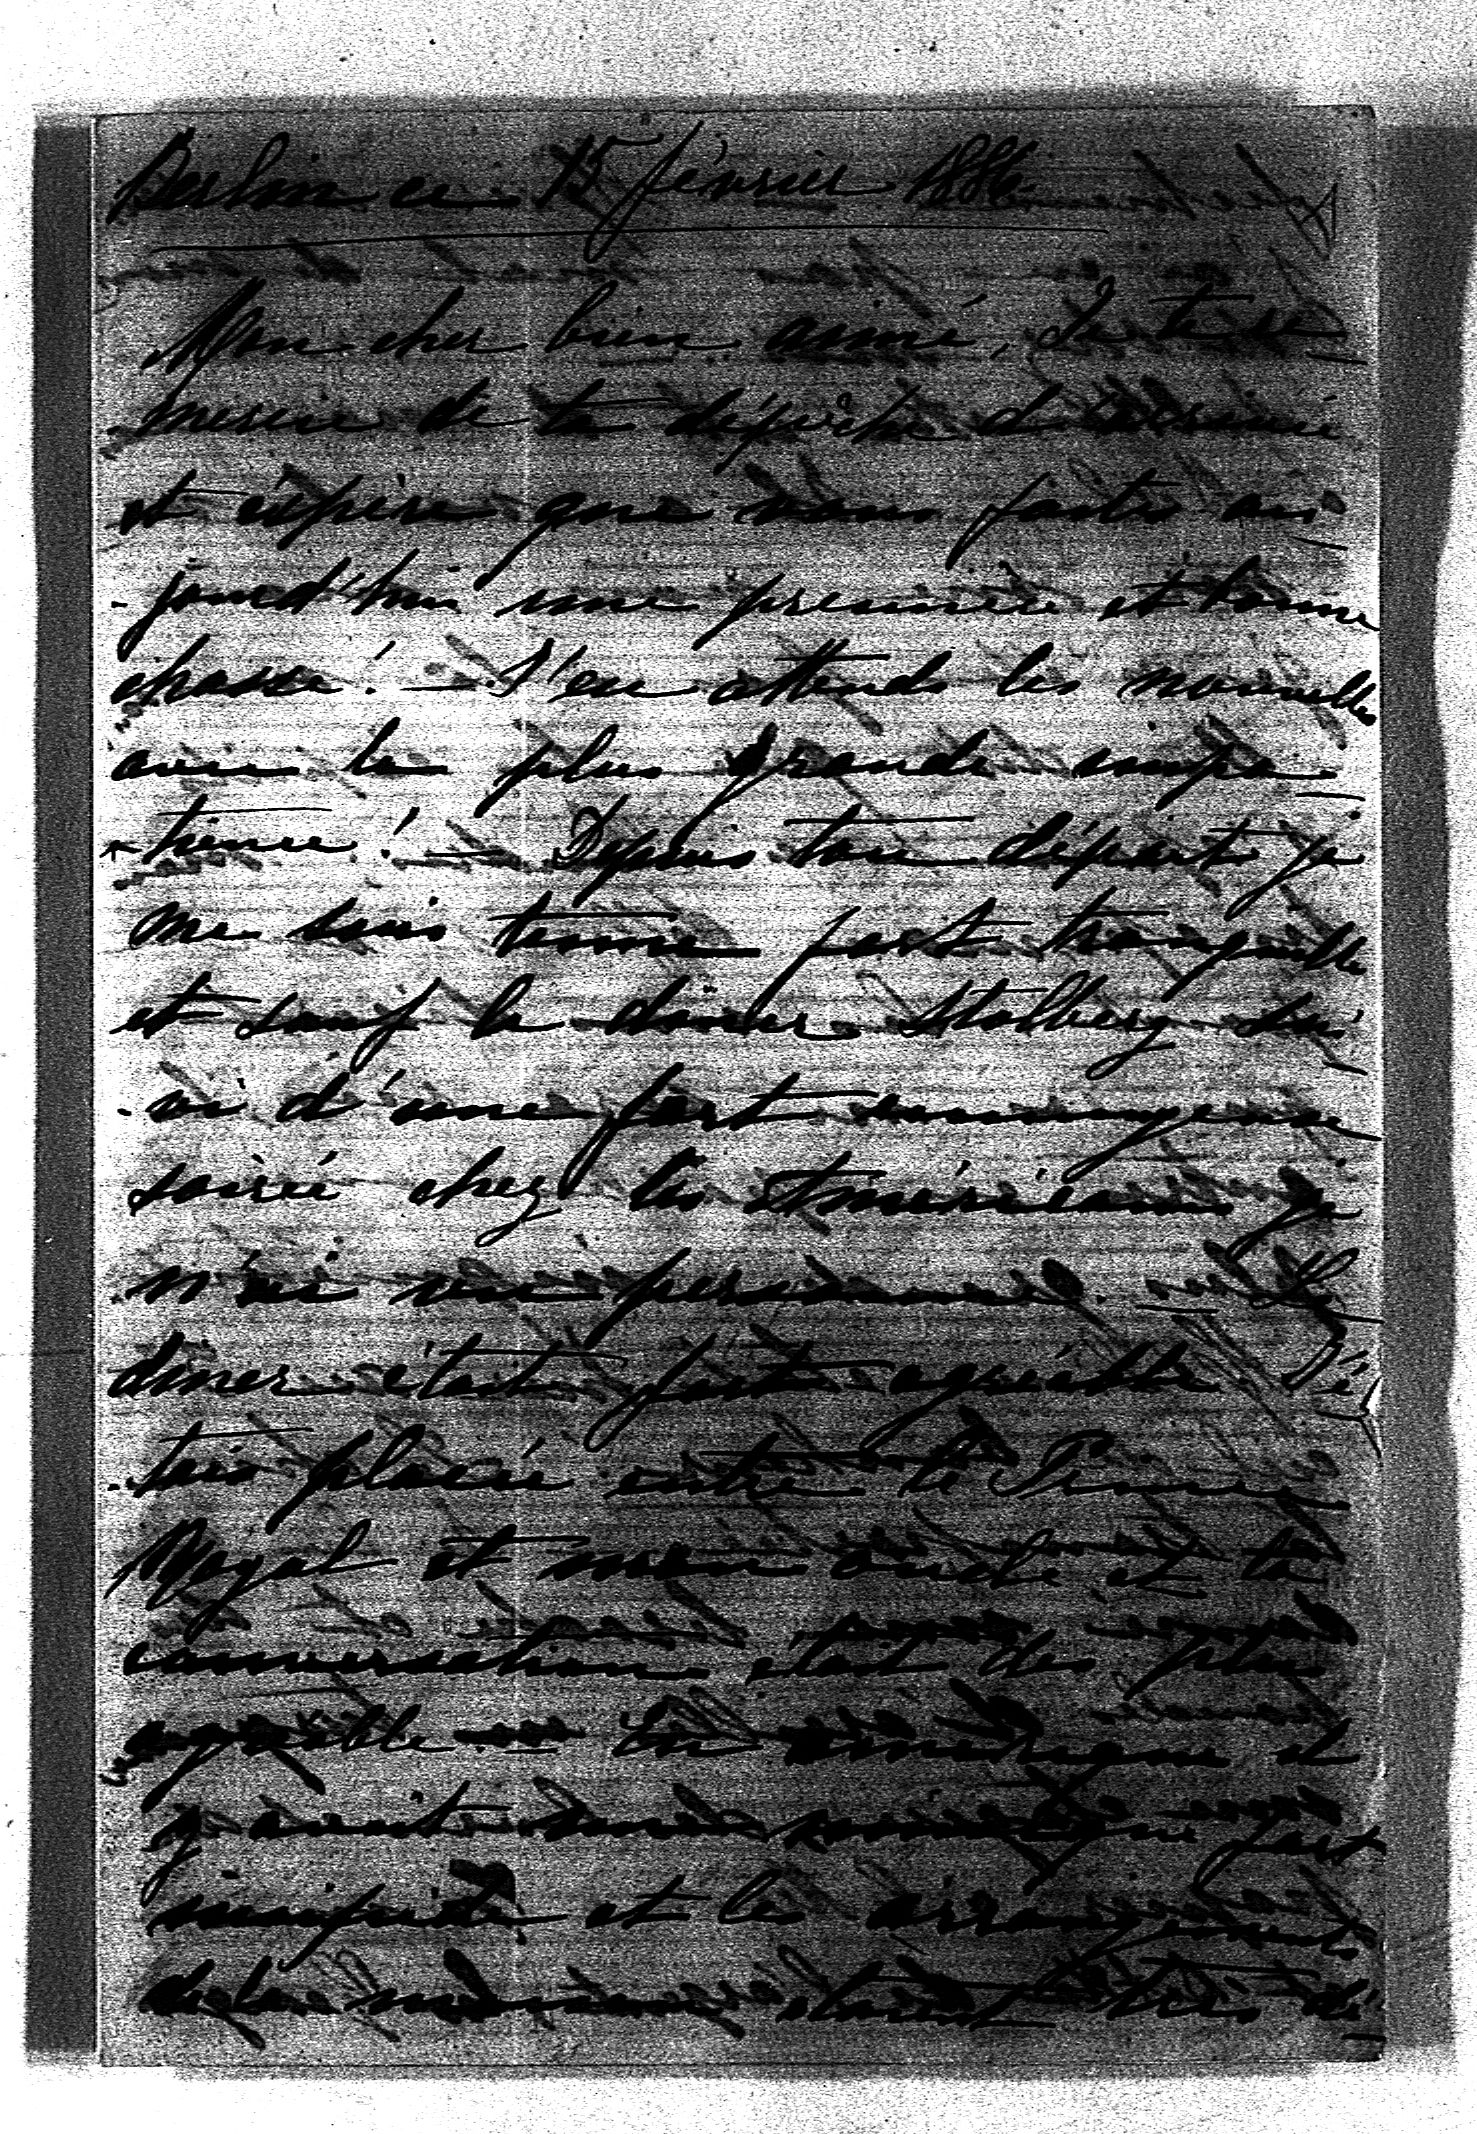 Berlin ce 15 février 1886.
Mon cher bien aimé, Je te re-
mercie de ta dépêche d'
et éspère que vous faites au-
-jourd'hui une première et bonne
chasse! — J'en attends les nouvelles
avec la plus grande impa-
-tience! — Depuis ton départ je
me suis tenue fort tranquille
et sauf le diner Stolberg sui-
-vi d'une fort ennuyeuse
soirée chez les Américains je
n'ai vu personne. — Le
diner était fort agréable. J'é-
-tais placée entre le Prince
Royal et mon oncle et la
conversation était des plus
agréable —
y avait une fort
insipide et les arrangements
de la maison étaient très dé-